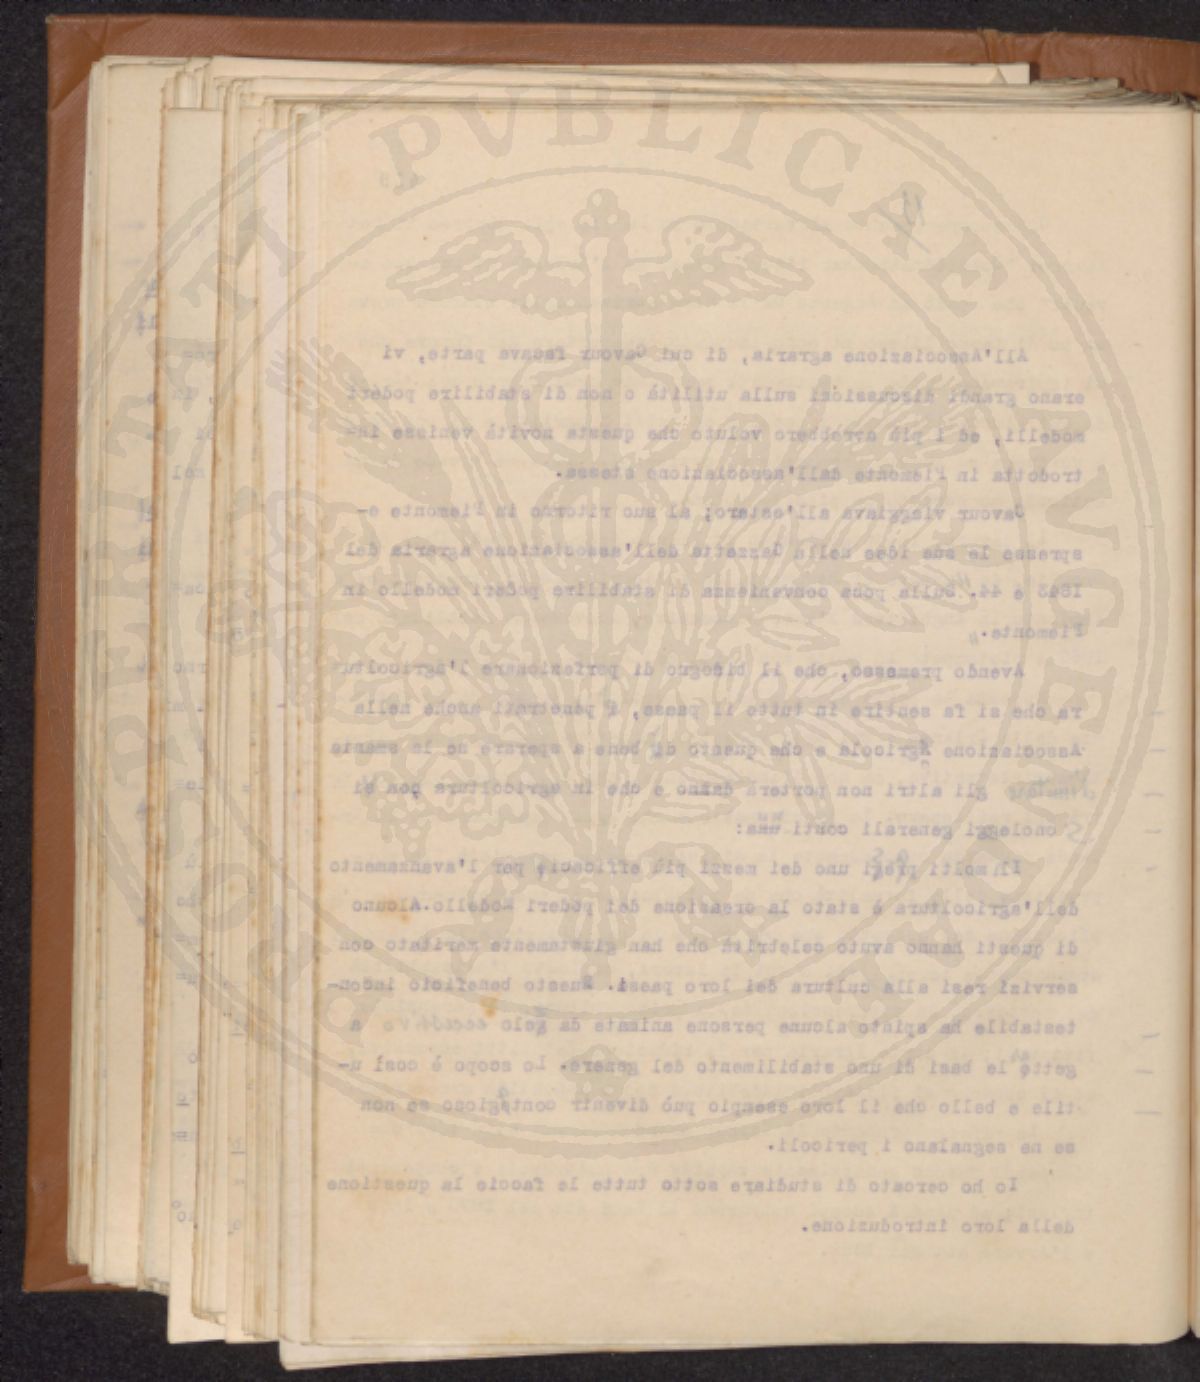 All'Associazione agraria, di cui Cavour faceva parte, vi
erano grandi discussioni sulla utilità o non di stabilire poderi
modelli, ed i più avrebbero voluto che questa novità venisse in=
trodotta in Piemonte dall'associazione stessa.
Cavour viaggiava all'estero; al suo ritorno in Piemonte e-
spresse le sue idee nella Gazzetta dell'associazione agraria del
1843 e 44. "Sulla poca convenienza di stabilire poderi modello in
Piemonte."
Avendo premesso, che il bisogno di perfezionare l'agricoltu-
ra che si fa sentire in tutto il paese, è penetrati anche nella
Associazione Agricola e che questo di bene a sperare se la smania
gli altri non porterà danno e che in agricoltura non si
oneleggi generali conti una:
Il molti pregi uno dei mezzi più efficacie per l'avanzamento
dell'agricoltura è stato la creazione dei poderi Modello.Alcuno
di questi hanno avuto celebrità che han giustamente meritato con
servizi resi alla cultura dei loro paesi. Questo beneficio incon-
testabile ha spinto alcune persone animate da zelo a
gette le basi di uno stabilimento del genere. Lo scopo è così u-
tile e bello che il loro esempio può divenir contagioso se non
se ne segnalano i pericoli.
Io ho cercato di studiare sotto tutte le faccie la questione
della loro introduzione.
PERITATI PVBLICAE AVGENDAE